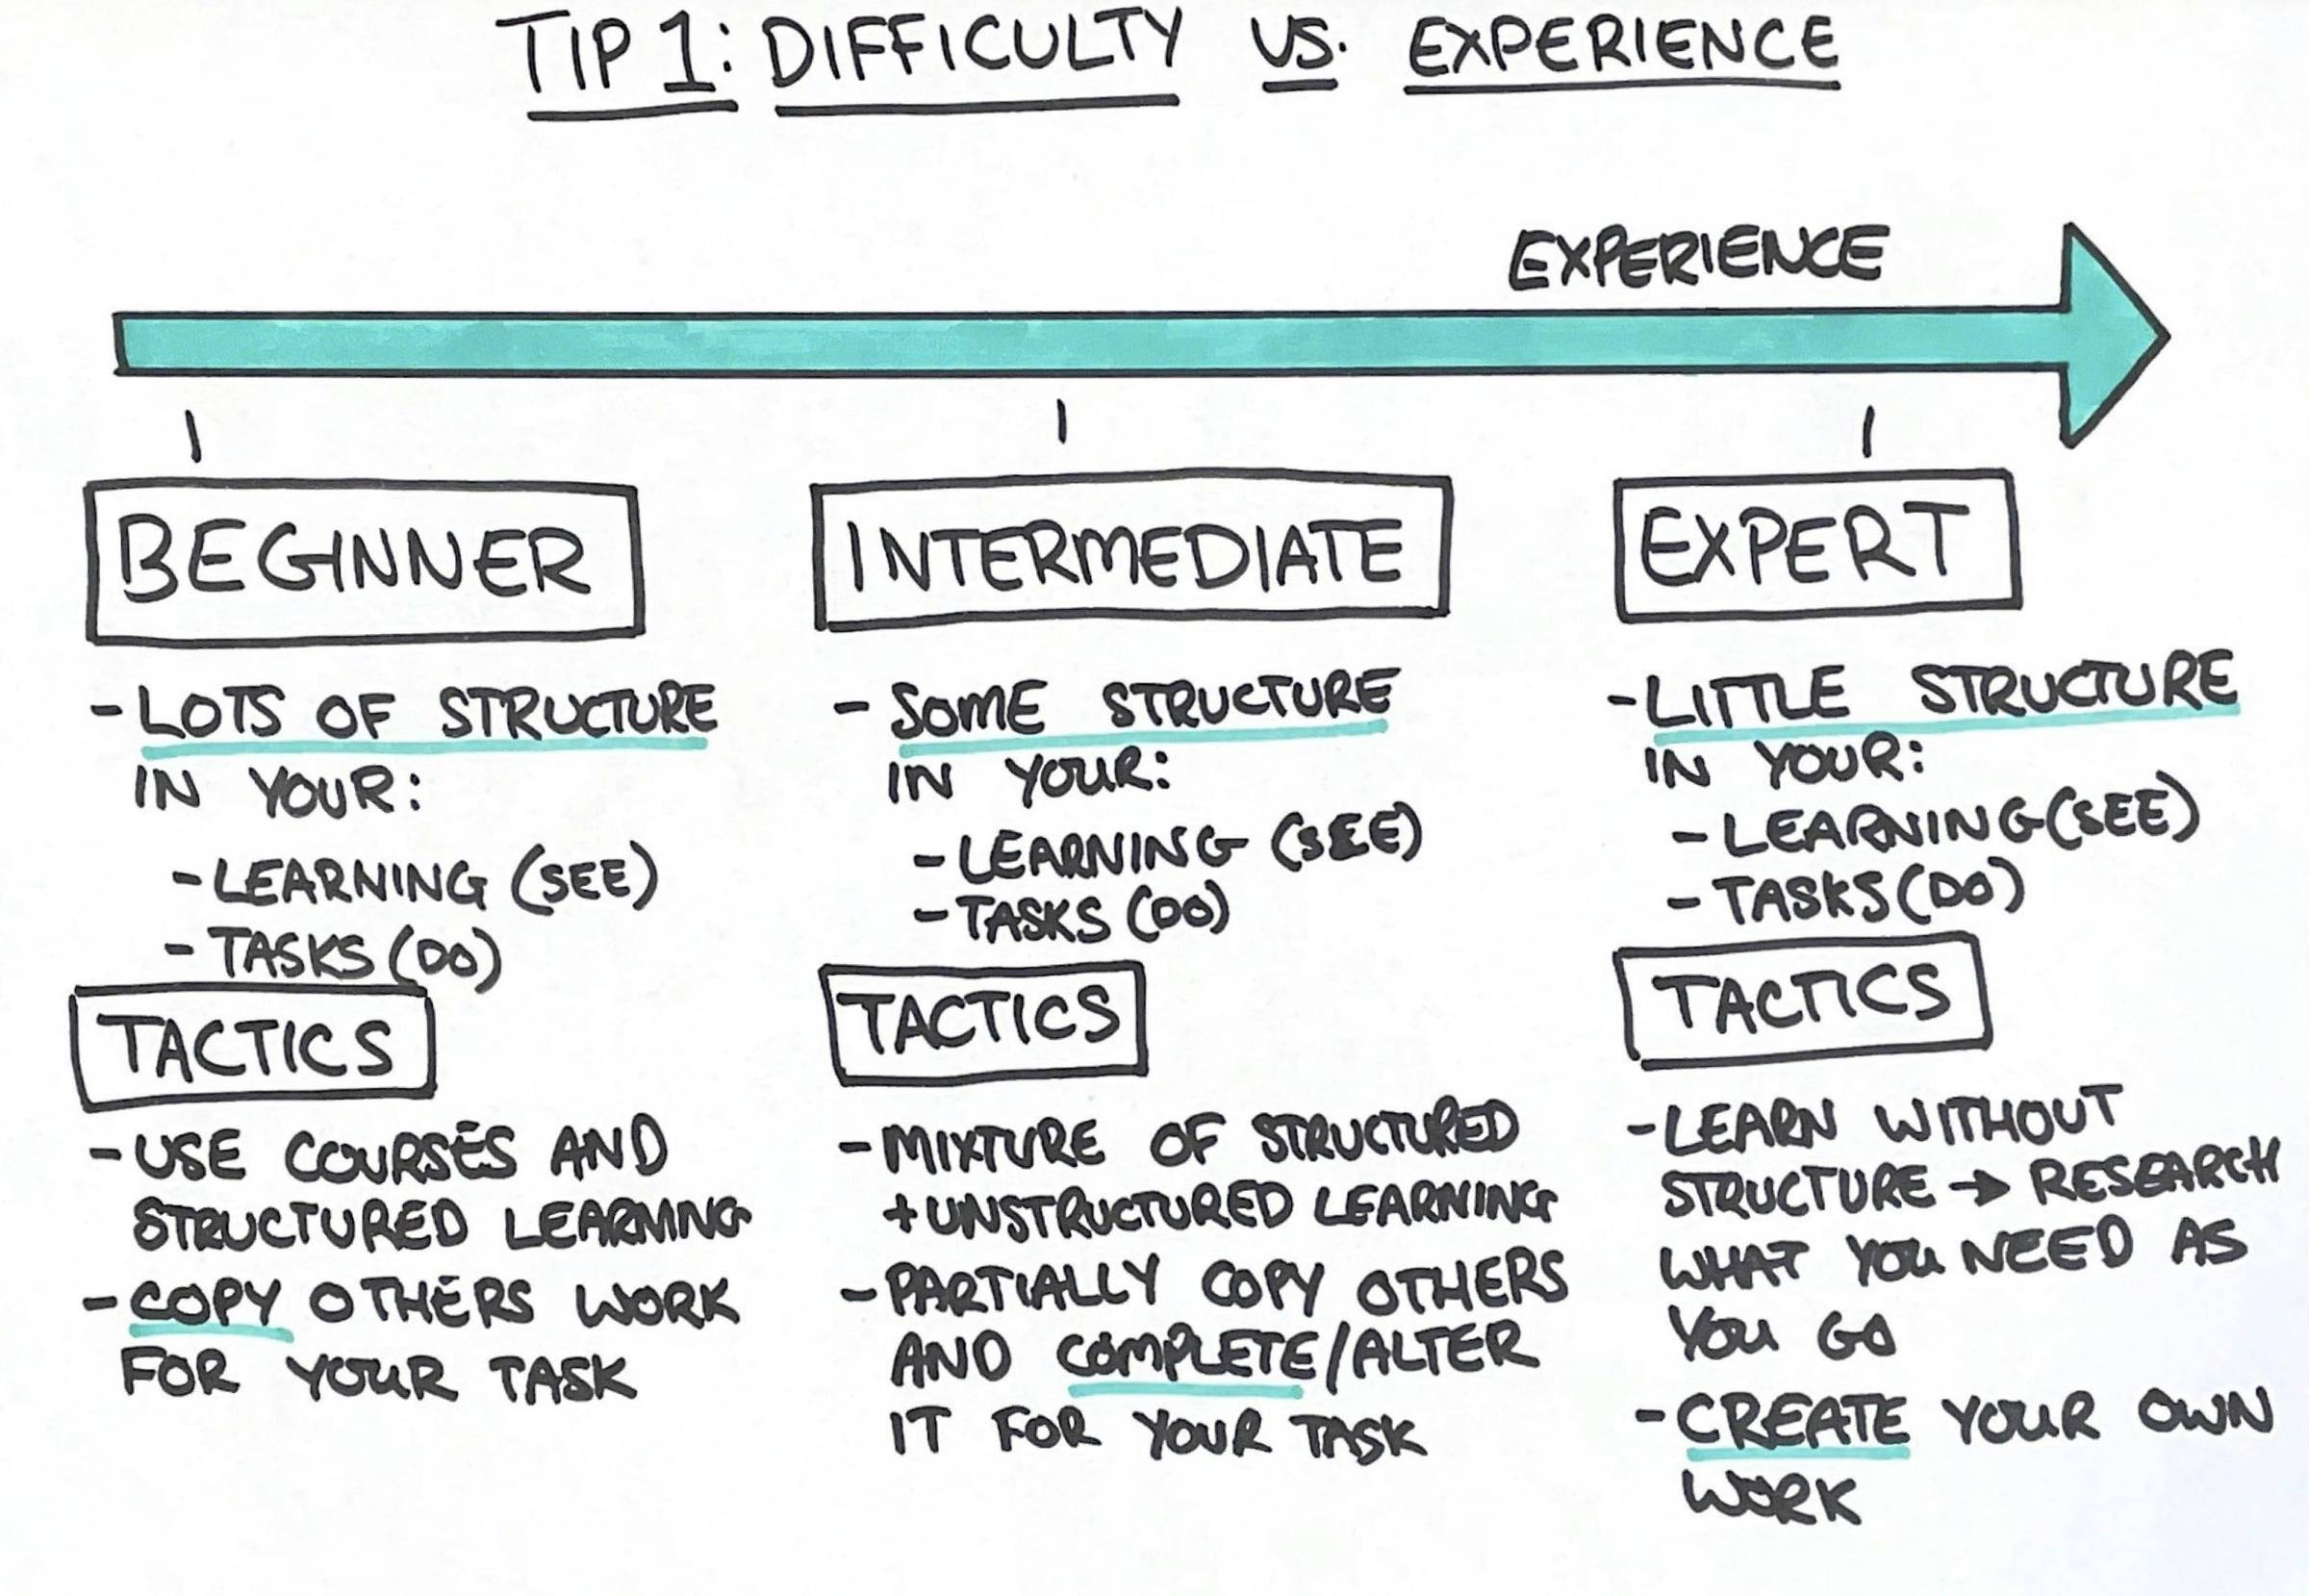 TIP 1: DIFFICULTY VS. EXPERIENCE
EXPERIENCE
BEGINNER
- LOTS OF STRUCTURE
IN YOUR:
- LEARNING (SEE)
- TASKS (DO)
TACTICS
- USE COURSES AND
STRUCTURED LEARNING
- COPY OTHERS WORK
FOR YOUR TASK
INTERMEDIATE
- SOME STRUCTURE
IN YOUR:
- LEARNING (SEE)
- TASKS (DO)
TACTICS
- MIXTURE OF STRUCTURED
+ UNSTRUCTURED LEARNING
- PARTIALLY COPY OTHERS
AND COMPLETE/ALTER
IT FOR YOUR TASK
EXPERT
- LITTLE STRUCTURE
IN YOUR:
- LEARNING (SEE)
- TASKS (DO)
TACTICS
- LEARN WITHOUT
STRUCTURE → RESEARCH
WHAT YOU NEED AS
YOU GO
- CREATE YOUR OWN
WORK